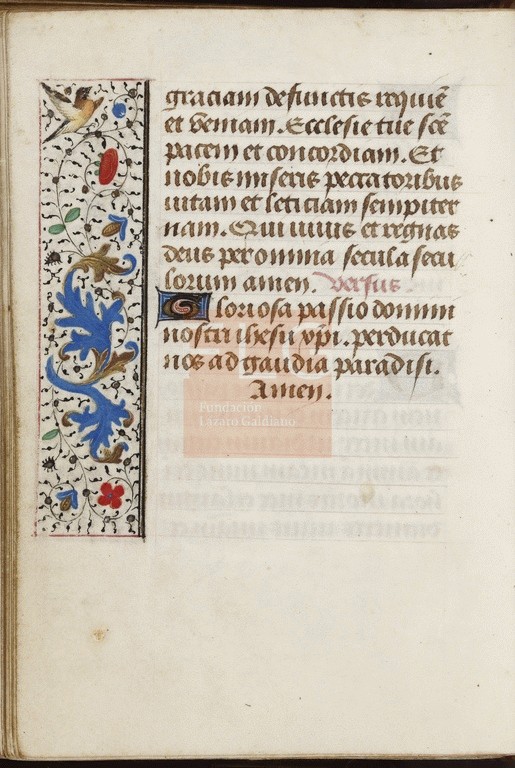 graciam defunctis requiē
et veniam. Ecclesie tue scē
pacem et concordiam. Et
nobis miseris peccatoribus
vitam et leticiam sempiter
nam. Qui vivis et regnas
deus per omnia secula secu
lorum amen. Versus
Gloriosa passio domini
nostri ihesu xpi. perducat
nos ad gaudia paradisi.
Amen.
Fundación
Lázaro Galdiano